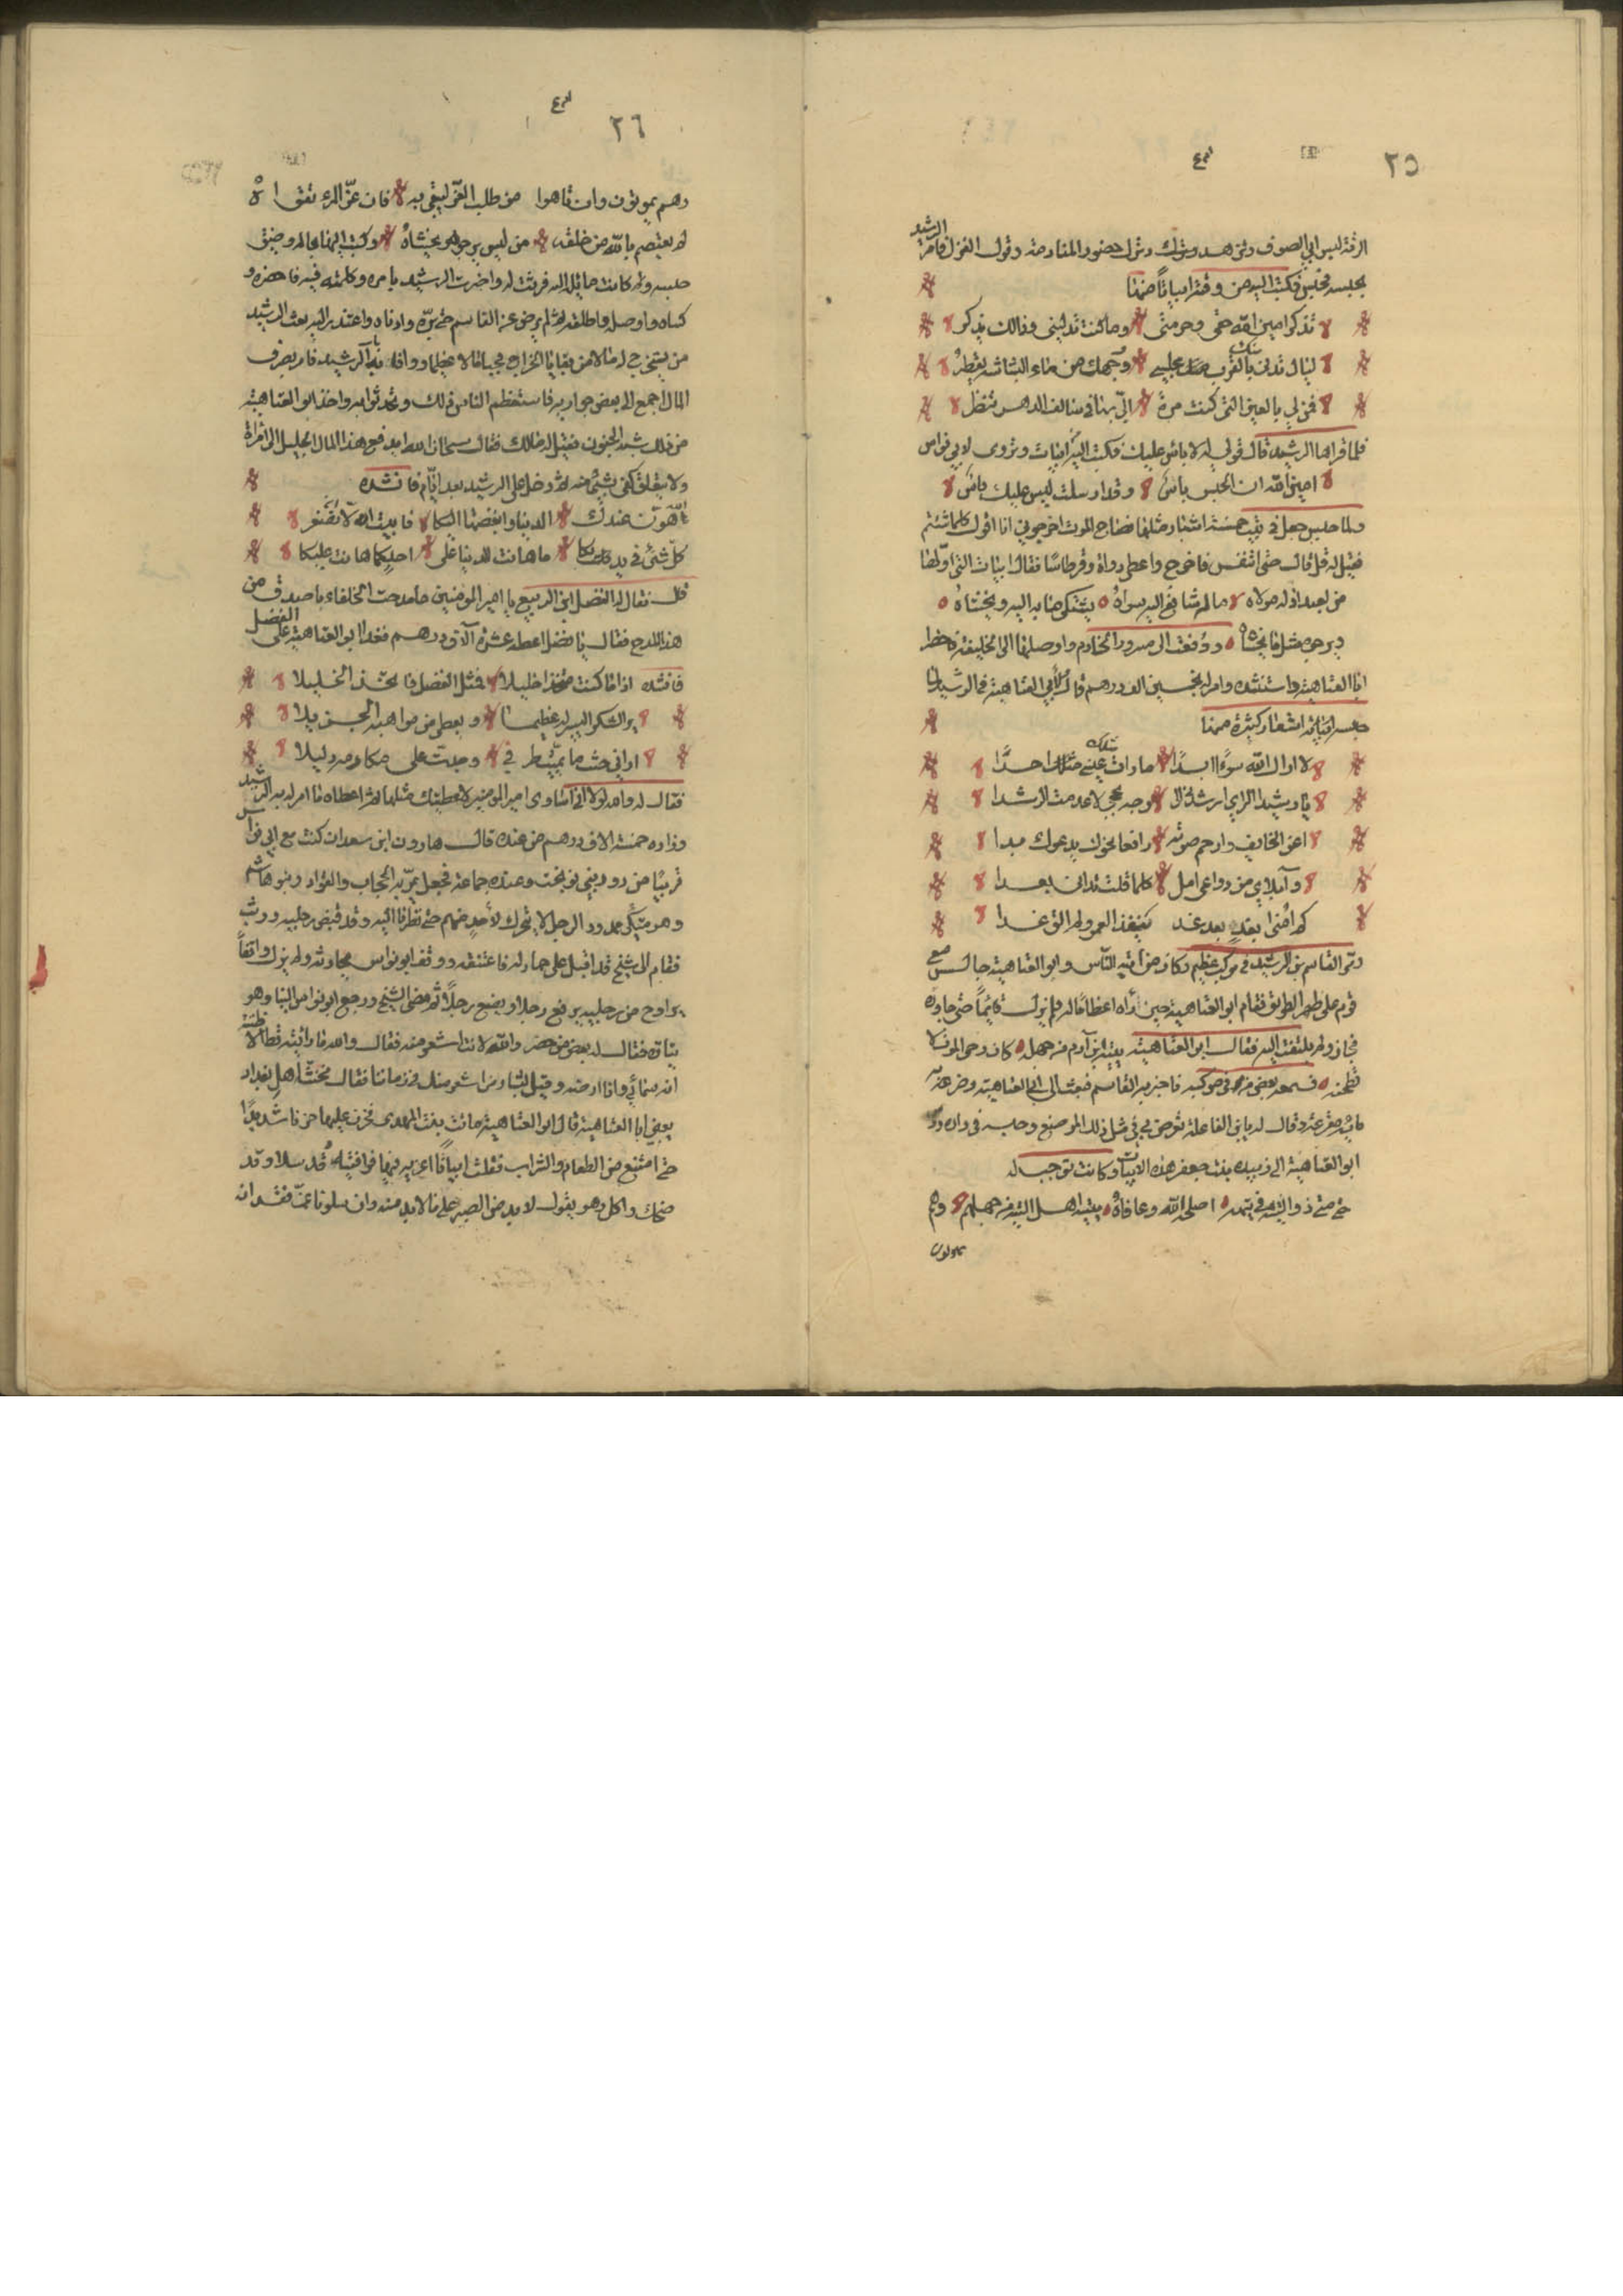 ٢٥
الرقة لبس ابي الصوف وتزهد وترك حضور المنادمة وقول الغزل فامر الرشيد
بحبسه فحبس فكتب اليه من وقته ابياتاً منها
تذكر امين الله حقي وحرمتي وما كنت توليني وذالك يذكر
ليال تدني بالقرب منك مجلسي ووجهك من ماء البشاشة يقطر
فمن لي بالعين التي كنت مرة الي بها في سالف الدهر تنظر
فلما قراها الرشيد قال قولي له لا باس عليك فكتب اليه ابيات وتروى لابي نواس
امين الله ان الحبس باس وقد ارسلت ليس عليك باس
ولما حبس جعل في بيت خمسة اشبار مثلها فصاح الموت اخرجوني انا اقول كلما شئتم
فقيل له قل قال حتى اتنفس فاخرج واعطي دواة وقرطاسا فقال ابيات التي اولها
من لعبد اذله مولاه ما له شافع اليه سواه يشتكي ما به اليه ويخشاه
ويرجو مثل ما يخشاه ودفعت الى مسرور الخادم واوصلها الى الخليفة فاحضر
ابا العتاهية واستنشده وامر له بخمسين الف درهم قال ابي العتاهية في الرشيد
حبسه ابياته اشعار كثيرة منها
لا ارال الله سوءا ابدا ما رات عيني مثلك احدا
يا رشيد الراي ارشدني الى وجه نجحي لا عدمت الرشدا
اعن الخايف وارحم صوته رافعا نحوك يدعوك يدا
وآبلاي من دواعي امل كلما قلت تدانى بعدا
كم امنى بغد بعد غد ينفذ العمر ولم الق غدا
ومر القاسم بن الرشيد في موكب عظيم وكان من اتيه الناس وابو العتاهية جالس مع
قوم على ظهر الطريق فقام ابو العتاهية حين رآه اعظاما له فلم يزل قائماً حتى جاوزه
فجاز ولم يلتفت اليه فقال ابو العتاهية يتيه ابن آدم من جهله كان رحى الموت لا
تطحنه فسمعه بعض من في موكبه فاخبر به القاسم فبعث الى ابي العتاهية وضربه
ماية مقرعة وقال له يا بن الفاعلة تعرض بي في مثل ذلك الموضع وحبسه في داره
ابو العتاهية الى زبيدة بنت جعفر هذه الابيات وكانت توجب له
حتى متى ذو التيه في تيهه اصلحه الله وعافاه يتيه اهل التيه من جهلهم وهم
يموتون
٢٦
وهم يموتون وان تاهوا من طلب العز ليبقى به فان عز المرء تقواه
لم يعتصم بالله من خلقه من ليس يرجوه ويخشاه وكتب اليها بحاله وضيق
حبسه ولم كانت مائلة اليه فرثت له واخبرت الرشيد بامره وكلمته فيه فاحضره و
كساه واوصله واطلقه ثم لم يرض عن القاسم حتى بره وادناه واعتذر اليه بعث الرشيد
من يستخرج له مالا من بقايا الخراج فجباه ووافا به الرشيد فامر بصرف
المال اجمع الى بعض جواريه فاستعظم الناس ذلك وتحدثوا به واخذ ابو العتاهية
من ذلك شبه الجنون فقيل له مالك فقال سبحان الله ايدفع هذا المال الجليل الى امراة
ولا يتعلق كفي بشئ منه ثم دخل على الرشيد بعد ايام فانشده
الله هون عندك الدنيا وابغضها اليكا فابيت الا ان تصغر
كل شئ في يديكا ما هانت الدنيا على احد كما هانت عليكا
قال فقال له الفضل ابن الربيع يا امير المؤمنين ما مدحت الخلفاء باصدق من
هذا المدح فقال يا فضل اعطه عشرة آلاف درهم فغدا ابو العتاهية على الفضل
فانشده اذا ما كنت متخذا خليلا فمثل الفضل فاتخذ الخليلا
يرى الشكر اليسير له عظيما ويعطي من مواهبه الجزيلا
اراني حيث ما يممت طرفي وجدت على مكارمه دليلا
فقال له والله لولا اني اساوي امير المومنين لاعطيتك مثلها ثم اعطاه ما امر له به الرشيد
وزاده خمسة الاف درهم من عنده قال هارون ابن سعدان كنت مع ابي نواس
قريبا من دور بني نوبخت وعنده جماعة فجعل يمر به الحجاب والقواد وبنو هاشم
وهو متكئ ممدود الرجل لا يتحرك لأحد منهم حتى نظرنا اليه وقد قبض رجليه ووثب
فقام الى شيخ قد اقبل على حمار له فاعتنقه ووقف ابو نواس يحادثه ولم يزل واقفاً
يراوح من رجليه يرفع رجلا ويضع رجلا ثم مضى الشيخ ورجع ابو نواس الينا وهو
يتاوه فقال له بعض من حضر والله لانت اشعر منه فقال والله ما رايته قط الا ظننت
انه سمائي وانا ارضه وقيل لبشار من اشعر منك في زماننا فقال مخنث اهل بغداد
يعني ابا العتاهية قال ابو العتاهية ماتت بنت المهدي فحزن عليها حزنا شديدا
حتى امتنع من الطعام والشراب فقلت ابياتا اعزيه فيها فوافيته قد سلا وقد
ضحك واكل وهو يقول لا بد من الصبر على ما لا بد منه وان سلونا عمن فقدانه